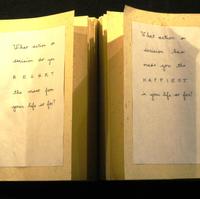 What action or
decision do you
REGRET
the most for
your life so far?
What action or
decision has
made you the
HAPPIEST
in your life so far?